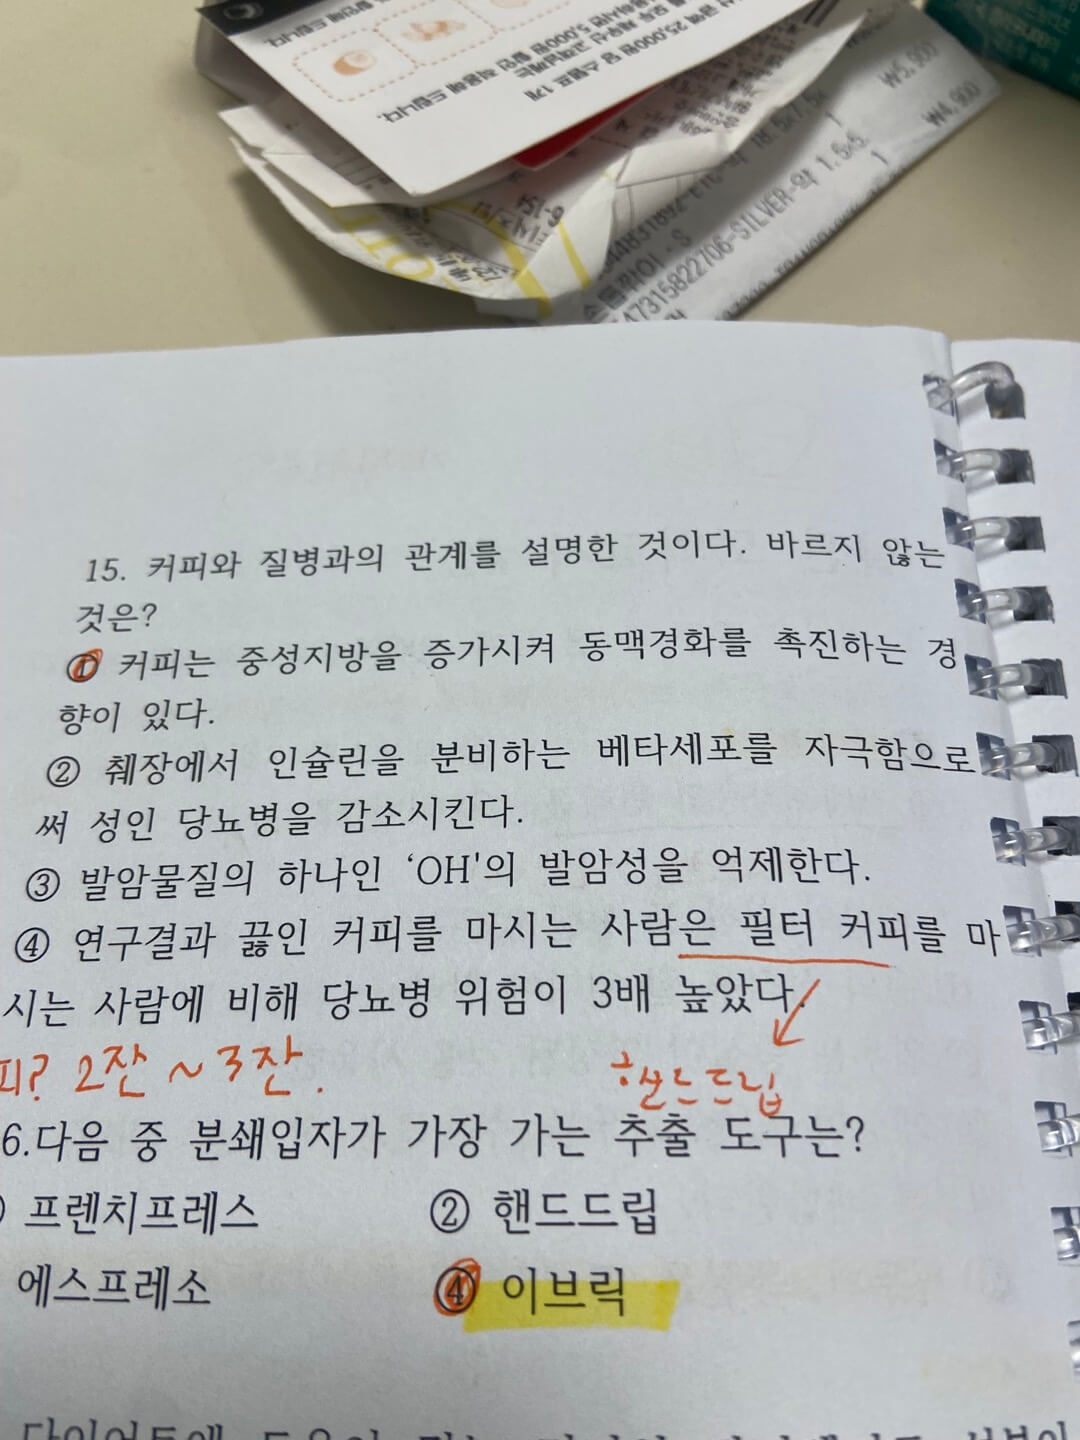 ₩5,900
₩4,900
25,000원 당 스탬프 1개
47315822706-SILVER-약 1.5x5. 1
15. 커피와 질병과의 관계를 설명한 것이다. 바르지 않는
것은?
① 커피는 중성지방을 증가시켜 동맥경화를 촉진하는 경
향이 있다.
② 췌장에서 인슐린을 분비하는 베타세포를 자극함으로
써 성인 당뇨병을 감소시킨다.
③ 발암물질의 하나인 ‘OH'의 발암성을 억제한다.
④ 연구결과 끓인 커피를 마시는 사람은 필터 커피를 마
시는 사람에 비해 당뇨병 위험이 3배 높았다.
피? 2잔 ~ 3잔.
핸드드립
6.다음 중 분쇄입자가 가장 가는 추출 도구는?
프렌치프레스 ② 핸드드립
에스프레소 ④ 이브릭